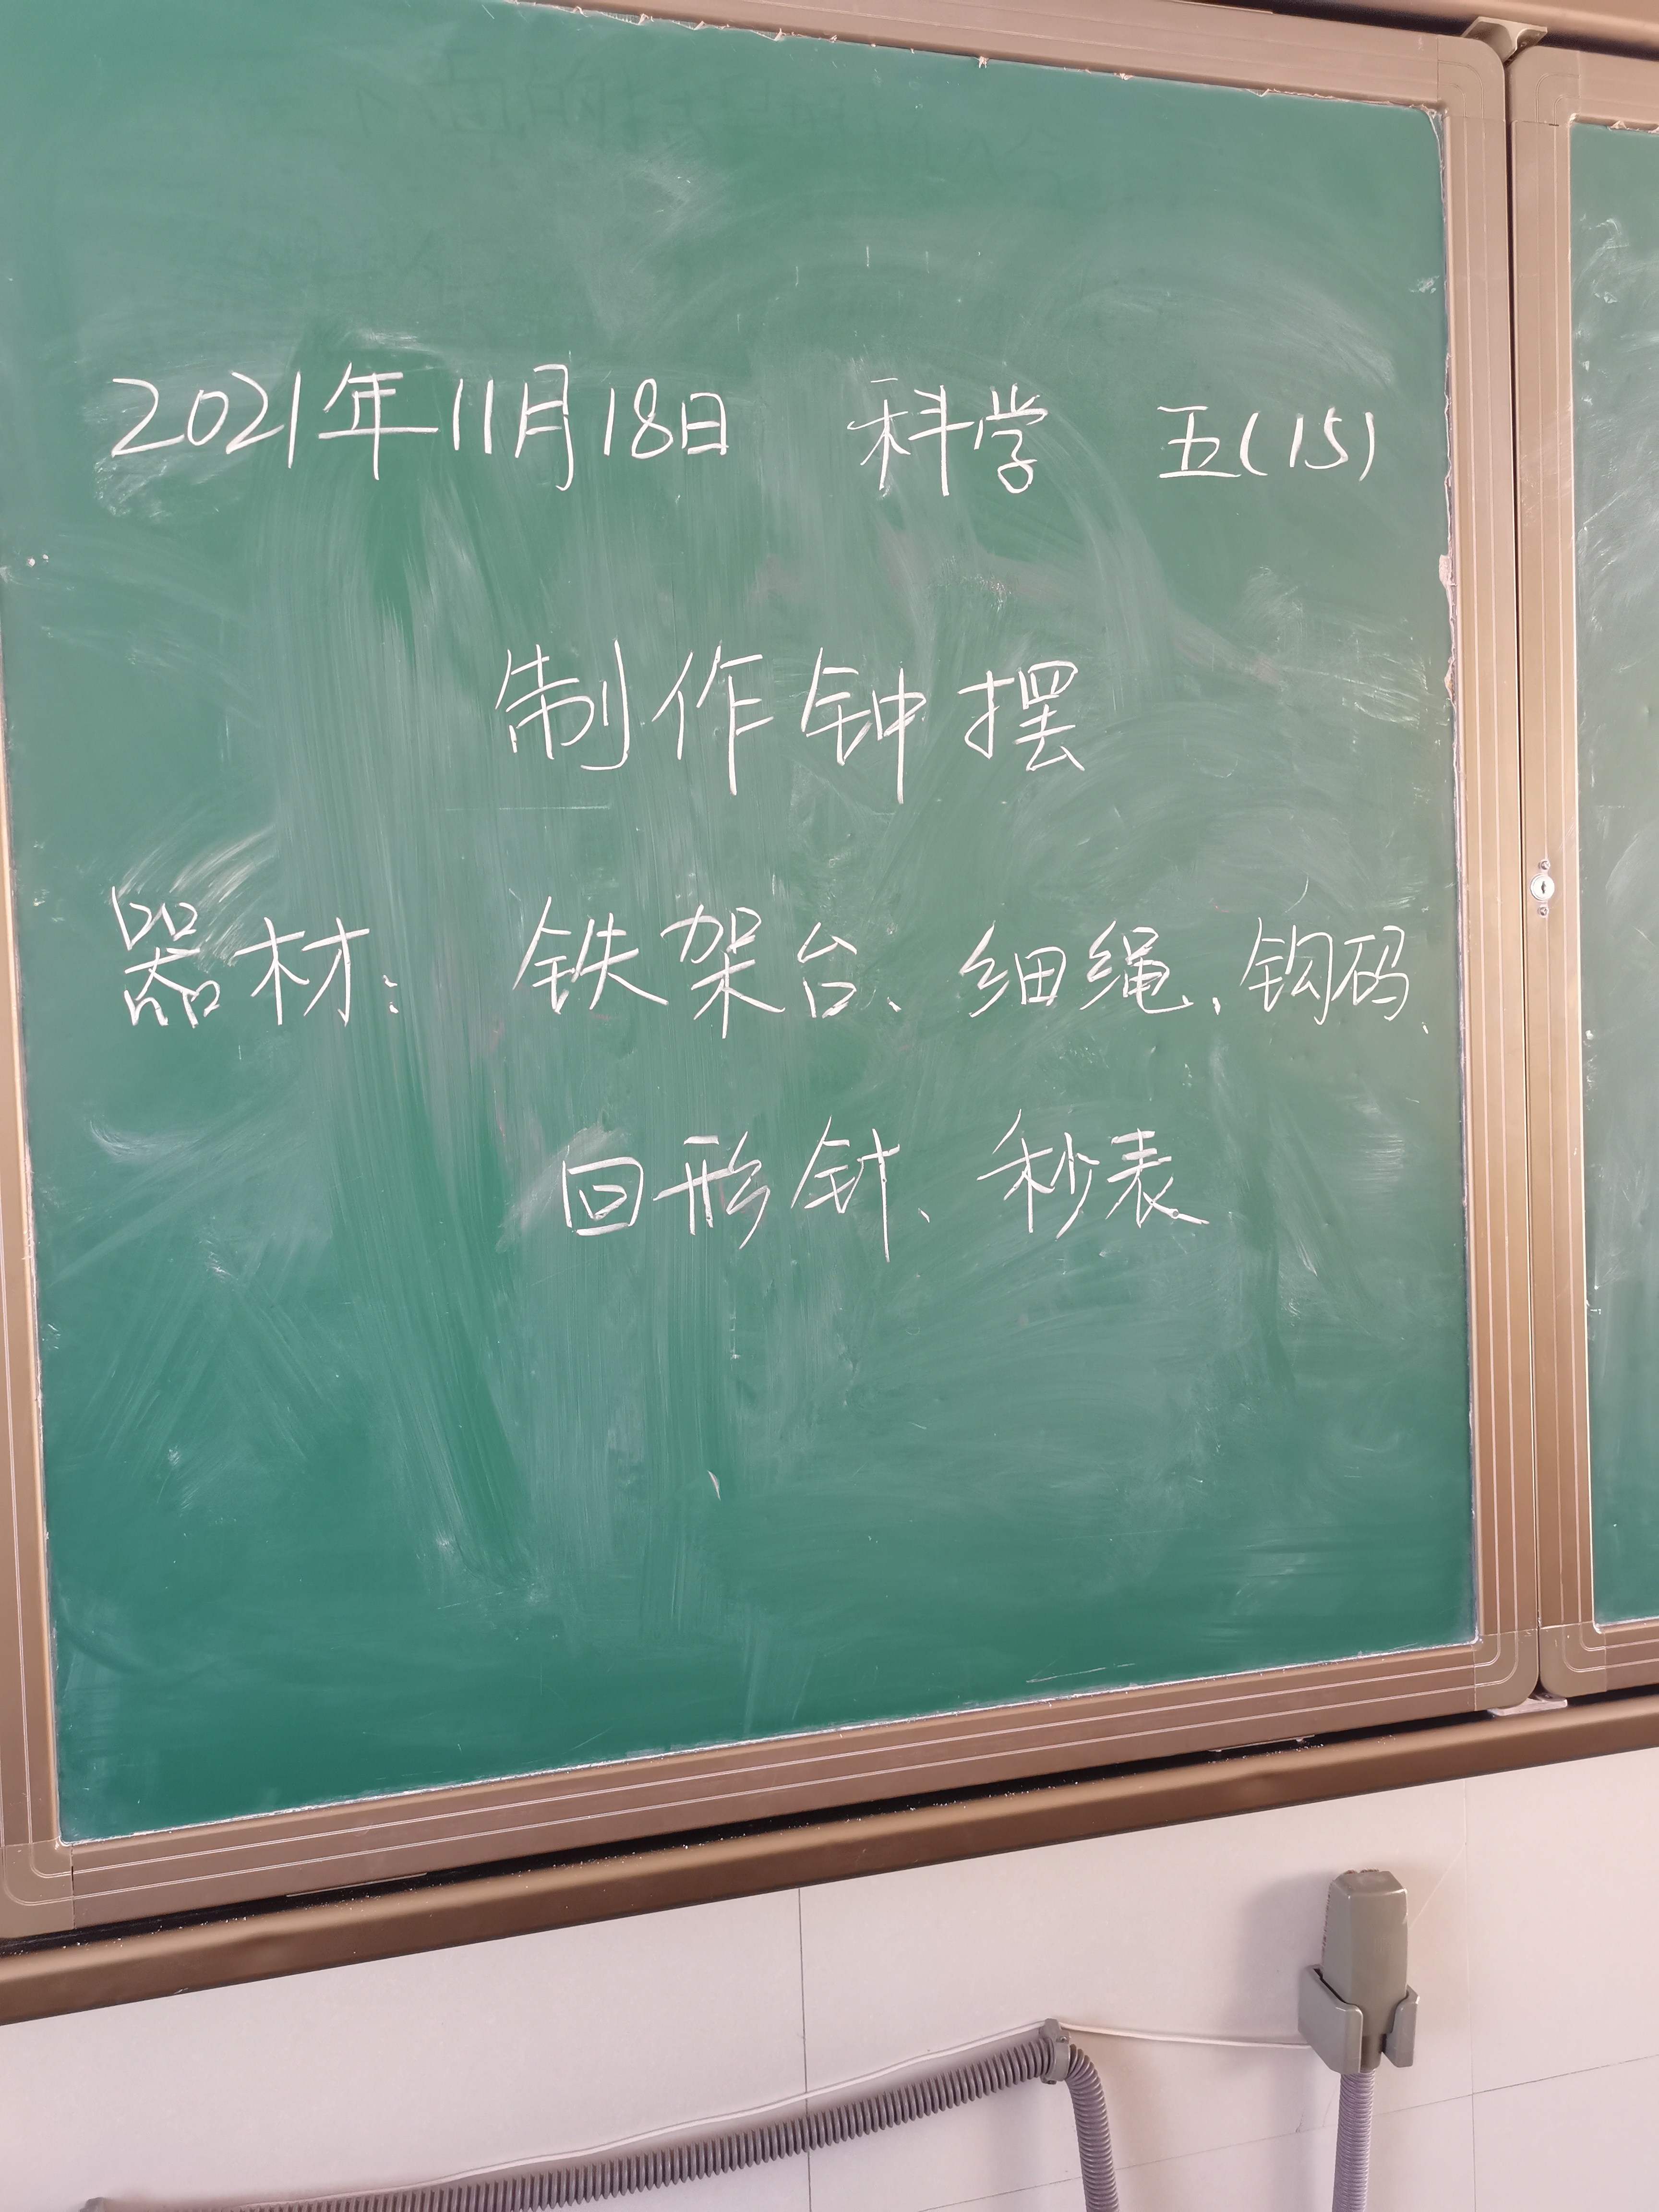 2021年11月18日 科学 五(15)
制作钟摆
器材: 铁架台、细绳、钩码、
回形针、秒表